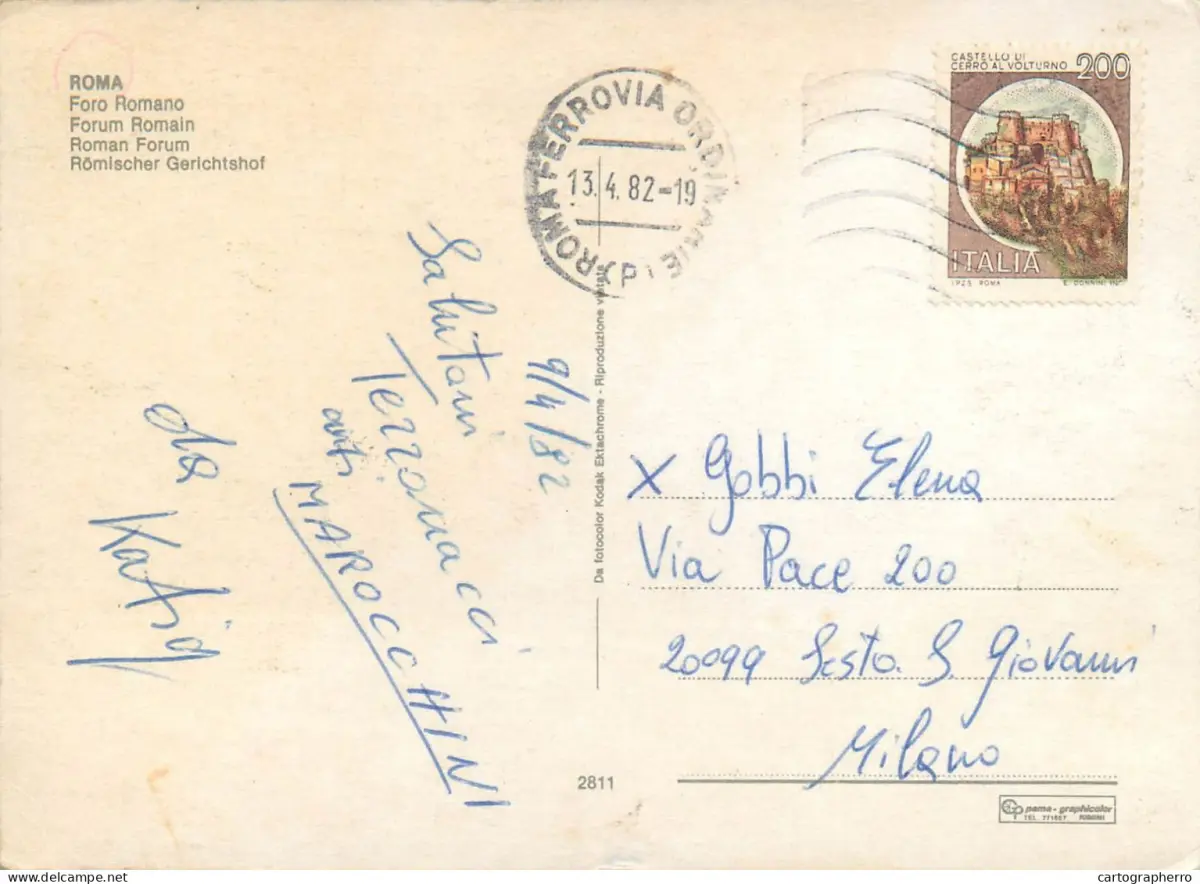 ROMA
Foro Romano
Forum Romain
Roman Forum
Römischer Gerichtshof
ROMA FERROVIA ORDINARIE (P)
13.4.82-19
CASTELLO DI
CERRO AL VOLTURNO 200
ITALIA
I.P.Z.S. ROMA E. DONNINI INC.
9/4/82
Salutani
Terronacci
anti
MAROCCHINI
da
Katia
Da fotocolor Kodak Ektachrome - Riproduzione vietata
X Gobbi Elena
Via Pace 200
20099 Sesto S. Giovanni
Milano
2811
pama-graphicolor
TEL. 771687 RIMINI
delcampe.net
cartographerro